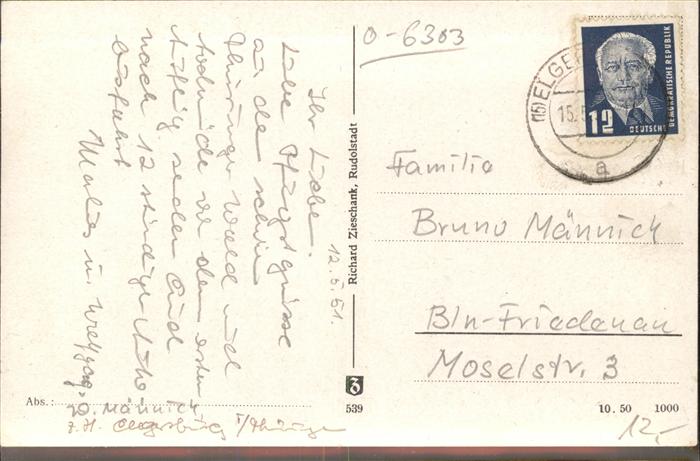 Ihr Lieben.
12.5.51.
Liebe Pfingstgrüsse
aus dem schönen
Thüringer Wald und
todmüde von dem ersten
Aufstieg senden Euch
nach 12 stündiger
Ausfahrt
Malies u. Wolfgang
Abs.:
W. Männich
z. Zt. Elgersburg i/Thüringen
Richard Zieschank, Rudolstadt
539
O-6303
(15) ELGE
15.5
a
12
DEUTSCHE
DEMOKRATISCHE REPUBLIK
Familie
Bruno Männich
Bln-Friedenau
Moselstr. 3
10.50 1000
12,-